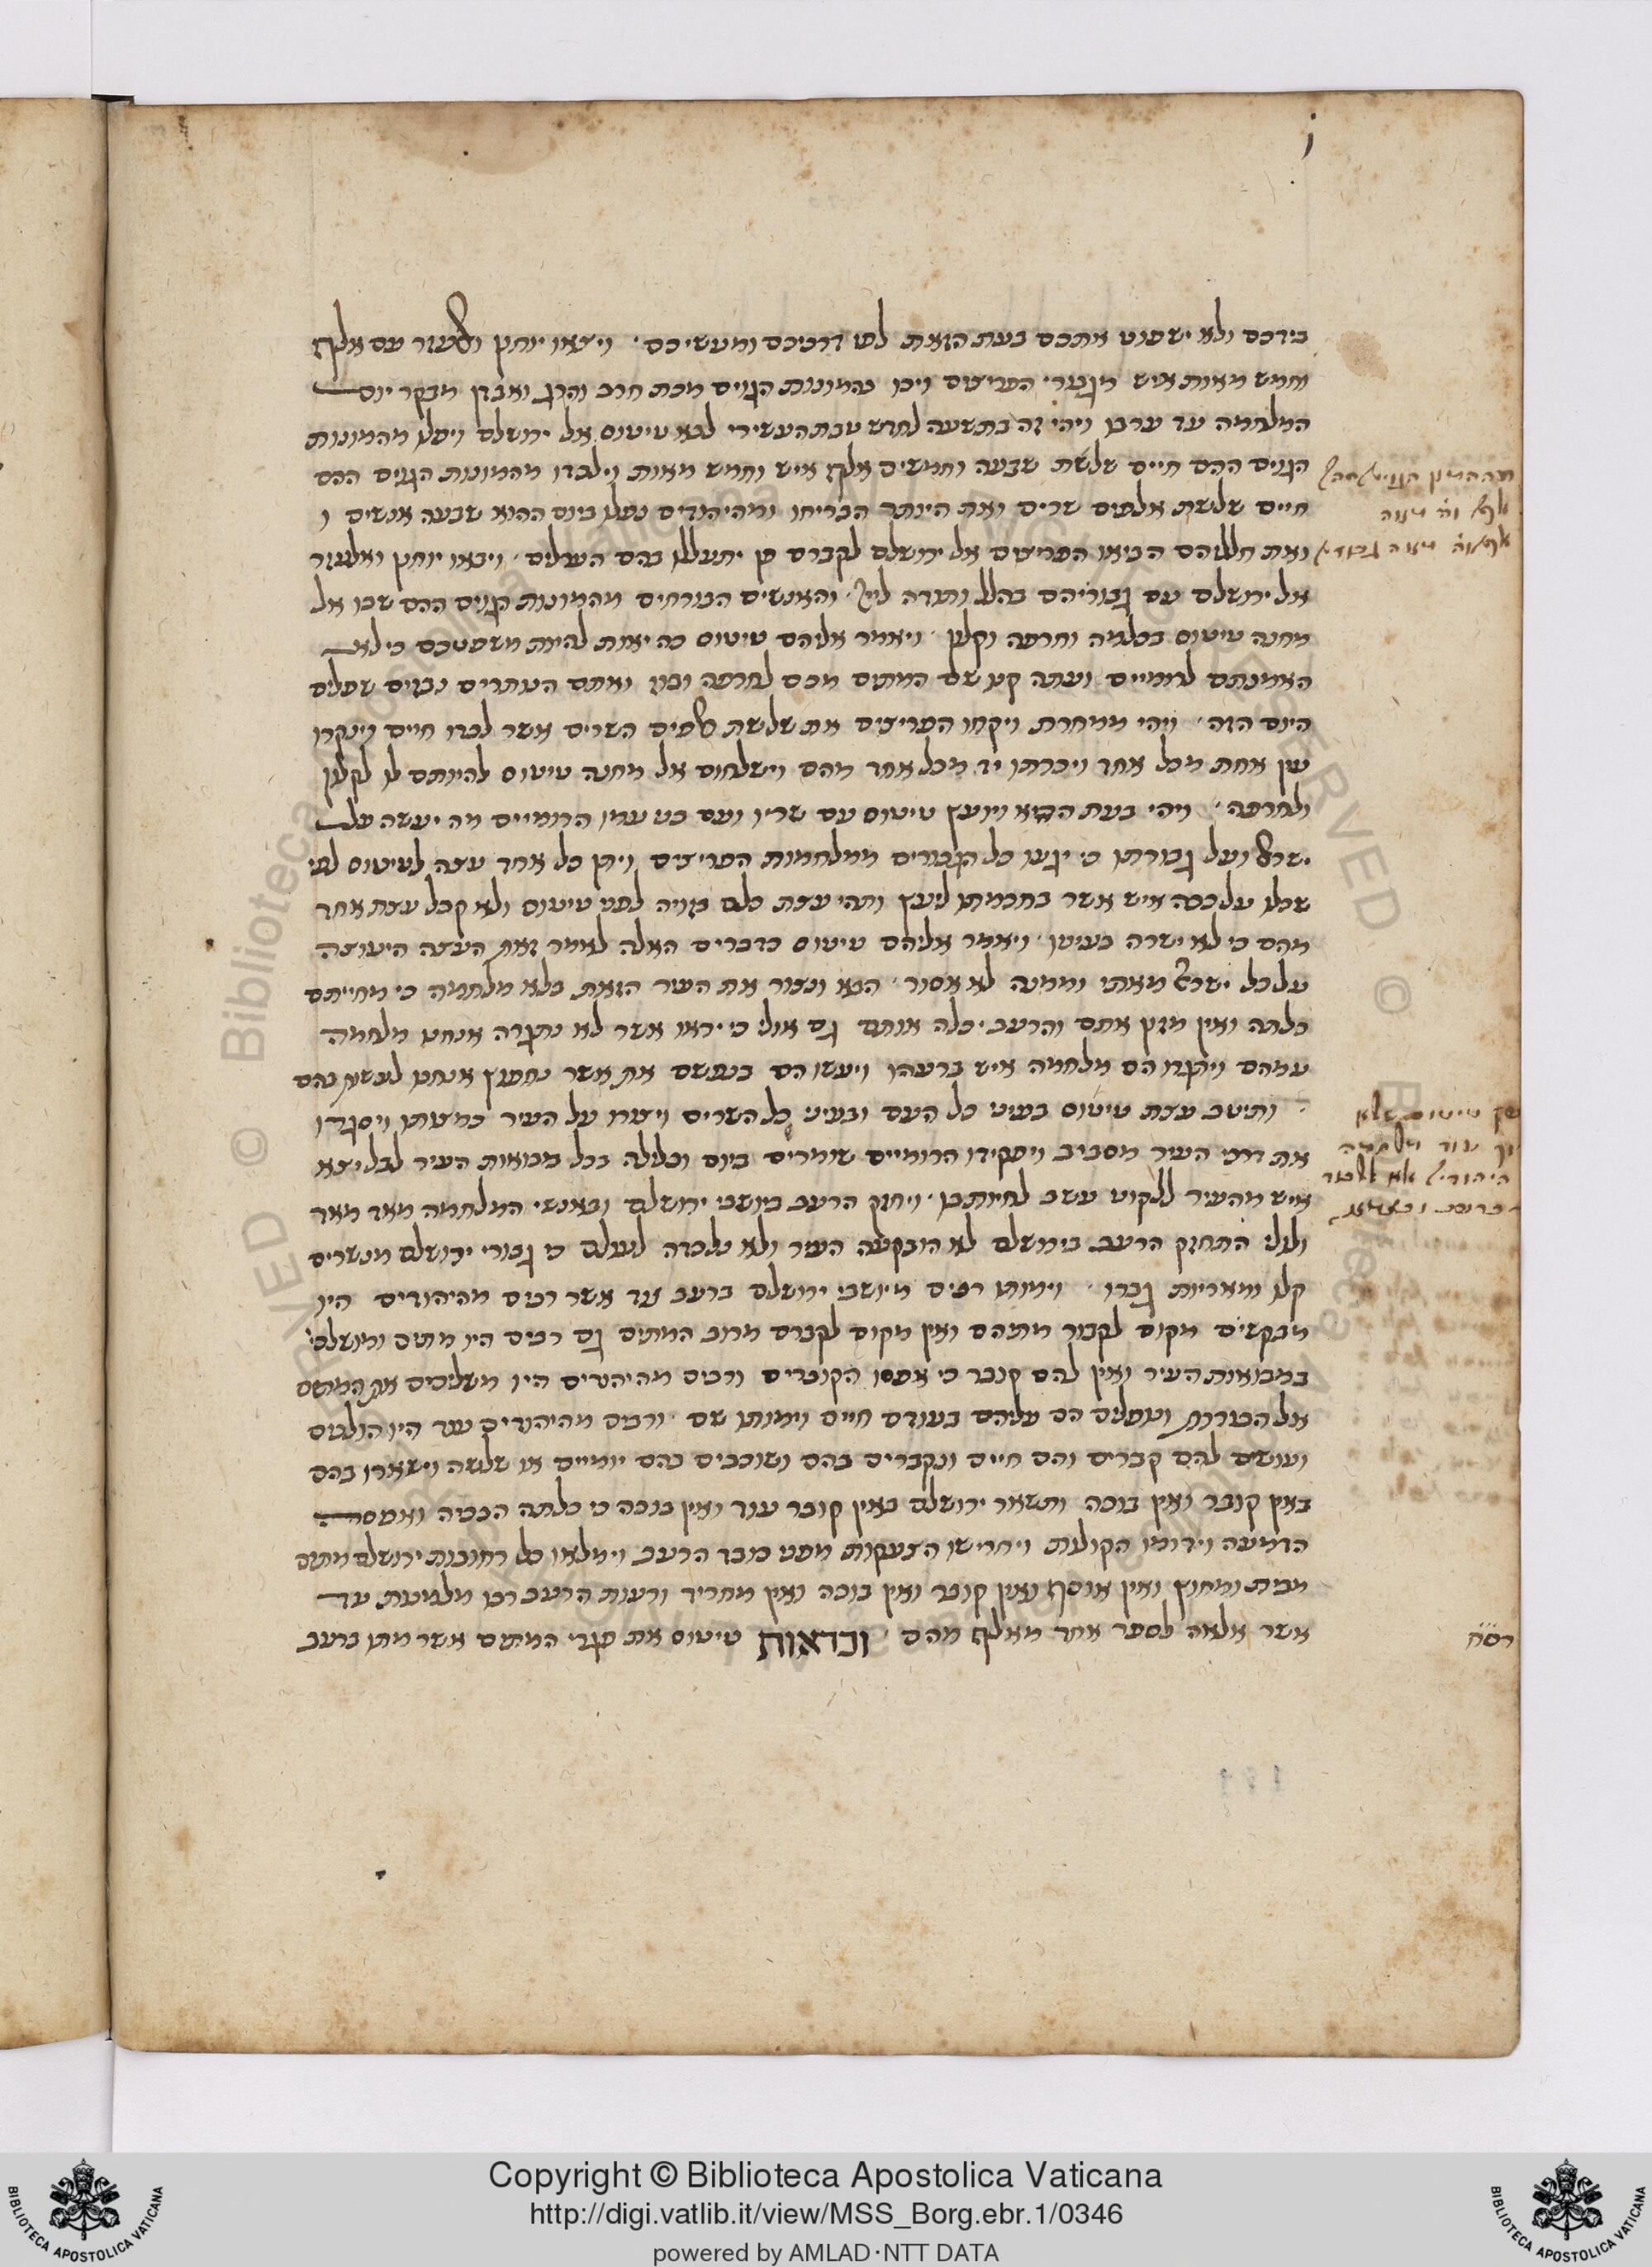 בידכם ולא ישפוט אתכם בעת הזאת לפי דרכיכם ומעשיכם. ויצאו יוחנן ואלעזר עם אלף
וחמש מאות איש מגבורי הפריצים ויכו בהמונות הגוים מכת חרב והרג ואבדן מבקר יום
המלחמה עד ערב ויהי זה בתשעה לחדש טבת העשירי לבא טיטוס אל ירושלם ויפלו מהמונות
הגוים ההם חיים שלשת שבעה וחמשים אלף איש וחמש מאות וילכדו מהמונות הגוים ההם
חיים שלשת אלפים שרים ואת היותר הבריחו ומהיהודים נפלו ביום ההוא שבעה אנשים ו
ואת חלליהם הביאו הפריצים אל ירושלם לקברם פן יתעללו בהם הערלים. ויבאו יוחנן ואלעזר
אל ירושלם עם גבוריהם בהלל ותודה לייי. והאנשים הבורחים מהמונות הגוים ההם שבו אל
מחנה טיטוס בכלמה וחרפה וקלון. ויאמר אליהם טיטוס כה יאות להיות משפטכם כי לא
האמנתם לרומיים ועתה קנו שם המתים מכם לחרפה ובוז ואתם הנותרים נבזים שפלים
היום הזה. ויהי ממחרת ויקחו הפריצים את שלשת אלפים השרים אשר לכדו חיים וינקרו
עין אחת מכל אחד ויכרתו יד מכל אחד מהם וישלחום אל מחנה טיטוס להיותם לו לקלון
ולחרפה. ויהי בעת ההיא ויועץ טיטוס עם שריו ועם כל עמיו הרומיים מה יעשה על
ישראל ועל גבורתן כי יגעו כל הגבורים ממלחמות הפריצים ויתן כל אחד עצה לטיטוס לפי
שכלו על כסה איש אשר בחכמתו ליעץ ותהי עצת כלם בזויה לפני טיטוס ולא קבל עצת אחד
מהם כי לא ישרה בעיניו. ויאמר אליהם טיטוס כדברים האלה לאמר זאת העצה היעוצה
על כל ישראל מאתי וממנה לא אסור. הבא ונצור את העיר הזאת בלא מלחמה כי מחייתם
כלתה ואין מזון אתם והרעב יכלה אותם גם אולי כי יראו אשר לא נתגרה אנחנו מלחמה
עמהם ויתגרו הם מלחמה איש ברעהו ויעשו הם בנפשם את אשר נחפוץ אנחנו לעשות בהם
ותיטב עצת טיטוס בעיני כל העם ובעיני כל השרים ויצורו על העיר במצותו ויסגרו
את דרכי העיר מסביב ויפקידו הרומיים שומרים ביום ובלילה בכל מבואות העיר לבל יצא
איש מהעיר ללקוט עשב לחיותם. ויחזק הרעב ביושבי ירושלם ובאנשי המלחמה מאד מאד
ולולי התחזק הרעב בירושלם לא הובקעה העיר ולא נלכדה לעולם כי גבורי ירושלם מנשרים
קלו ומאריות גברו. וימותו רבים מיושבי ירושלם ברעב עד אשר רבים מהיהודים היו
מבקשים מקום לקבור מתיהם ואין מקום לקברם מרוב המתים גם רבים היו מתים ומושלכי'
במבואות העיר ואין להם קובר כי אפסו הקוברים ורבים מהיהודים היו משליכים את המתים
אל הבורות ונופלים הם עליהם בעודם חיים וימותו שם. ורבים מהיהודים עוד היו הולכים
ועושים להם קברים והם חיים ונקברים בהם ושוכבים בהם יומיים או שלשה וישארו בהם
באין קובר ואין בוכה ותשאר ירושלם באין קובר עוד ואין בוכה כי כלתה הבכיה ואפסה
הדמעה וידומו הקולות ויחרישו הצעקות מפני כובד הרעב וימלאו כל רחובות ירושלם מתים
מבית ומחוץ ואין אוסף ואין קובר ואין בוכה ואין מחריד ורעות הרעב רבו מלמנות עד
אשר אלאה לספר אחד מאלף מהם. וכראות טיטוס את פגרי המתים אשר מתו ברעב
Copyright © Biblioteca Apostolica Vaticana
http://digi.vatlib.it/view/MSS_Borg.ebr.1/0346
powered by AMLAD·NTT DATA